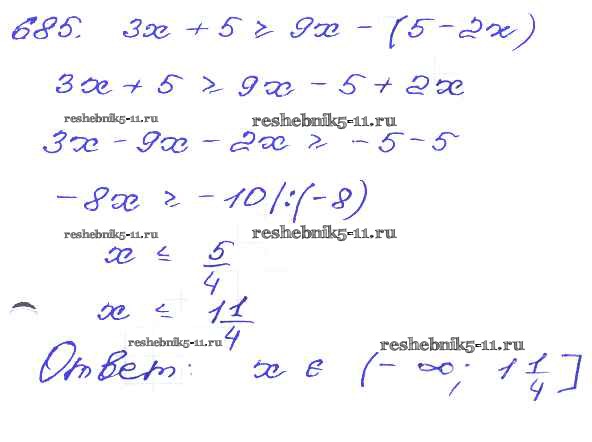 685. 3x + 5 ≥ 9x - (5 - 2x)
3x + 5 ≥ 9x - 5 + 2x
reshebnik5-11.ru reshebnik5-11.ru
3x - 9x - 2x ≥ -5 - 5
-8x ≥ -10 |:(-8)
reshebnik5-11.ru reshebnik5-11.ru
x ≤ 5/4
x ≤ 1 1/4
reshebnik5-11.ru reshebnik5-11.ru
Ответ: x ∈ (-∞; 1 1/4]